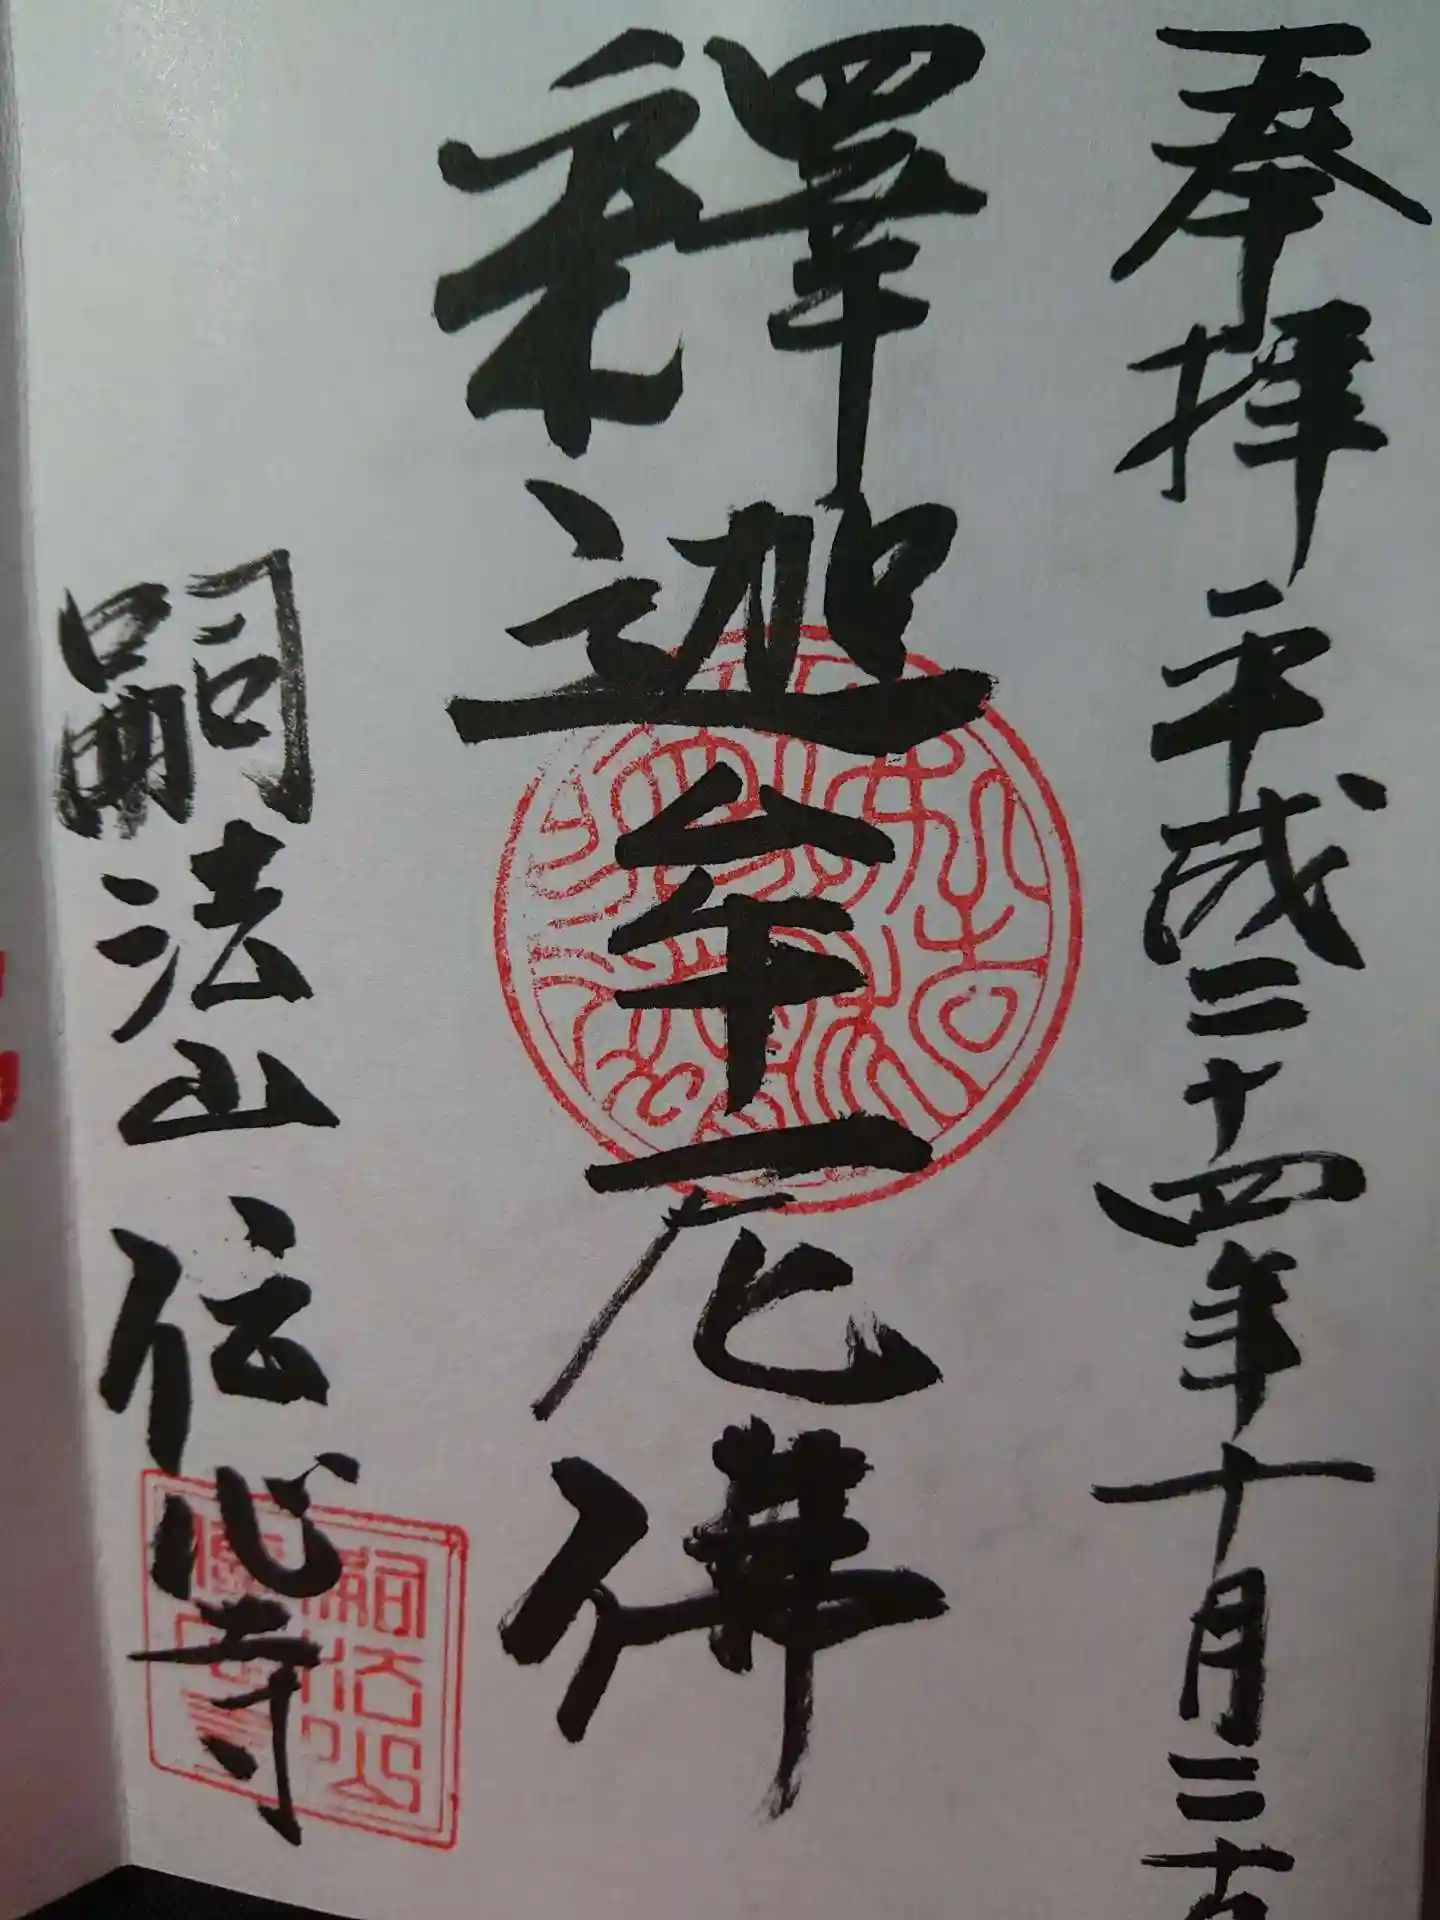 奉拝 平成二十四年十月二十
釋迦牟尼佛
嗣法山 伝心寺
嗣法山